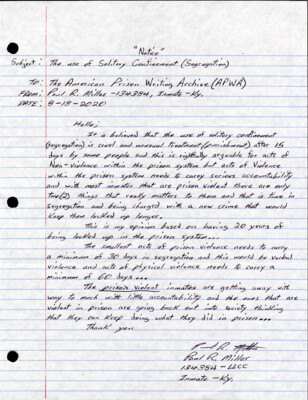 "Notice"
Subject: The use of Solitary Confinement (Segregation)
To: The American Prison Writing Archive (APWA)
From: Paul R. Miller -134354, Inmate -Ky.
Date: 8-18-2020
Hello;
It is believed that the use of solitary confinement
(segregation) is cruel and unusual treatment (punishment) after 15
days by some people and this is rightfully arguable for acts of
Non-Violence within the prison system but acts of Violence
within the prison system needs to carry serious accountability
and with most inmates that are prison violent there are only
two(2) things that really matters to them and that is time in
segregation and being charged with a new crime that would
keep them locked up longer.
This is my opinion based on having 20 years of
being locked up in the prison system...
The smallest acts of prison violence needs to carry
a minimum of 30 days in segregation and this would be verbal
violence and acts of physical violence needs to carry a
minimum of 60 days...
The prison violent inmates are getting away with
way to much with little accountability and the ones that are
violent in prison are going back out into society thinking
that they can keep doing what they did in prison...
Thank you
Paul R. Miller
Paul R. Miller
134354 - LLCC
Inmate - Ky.